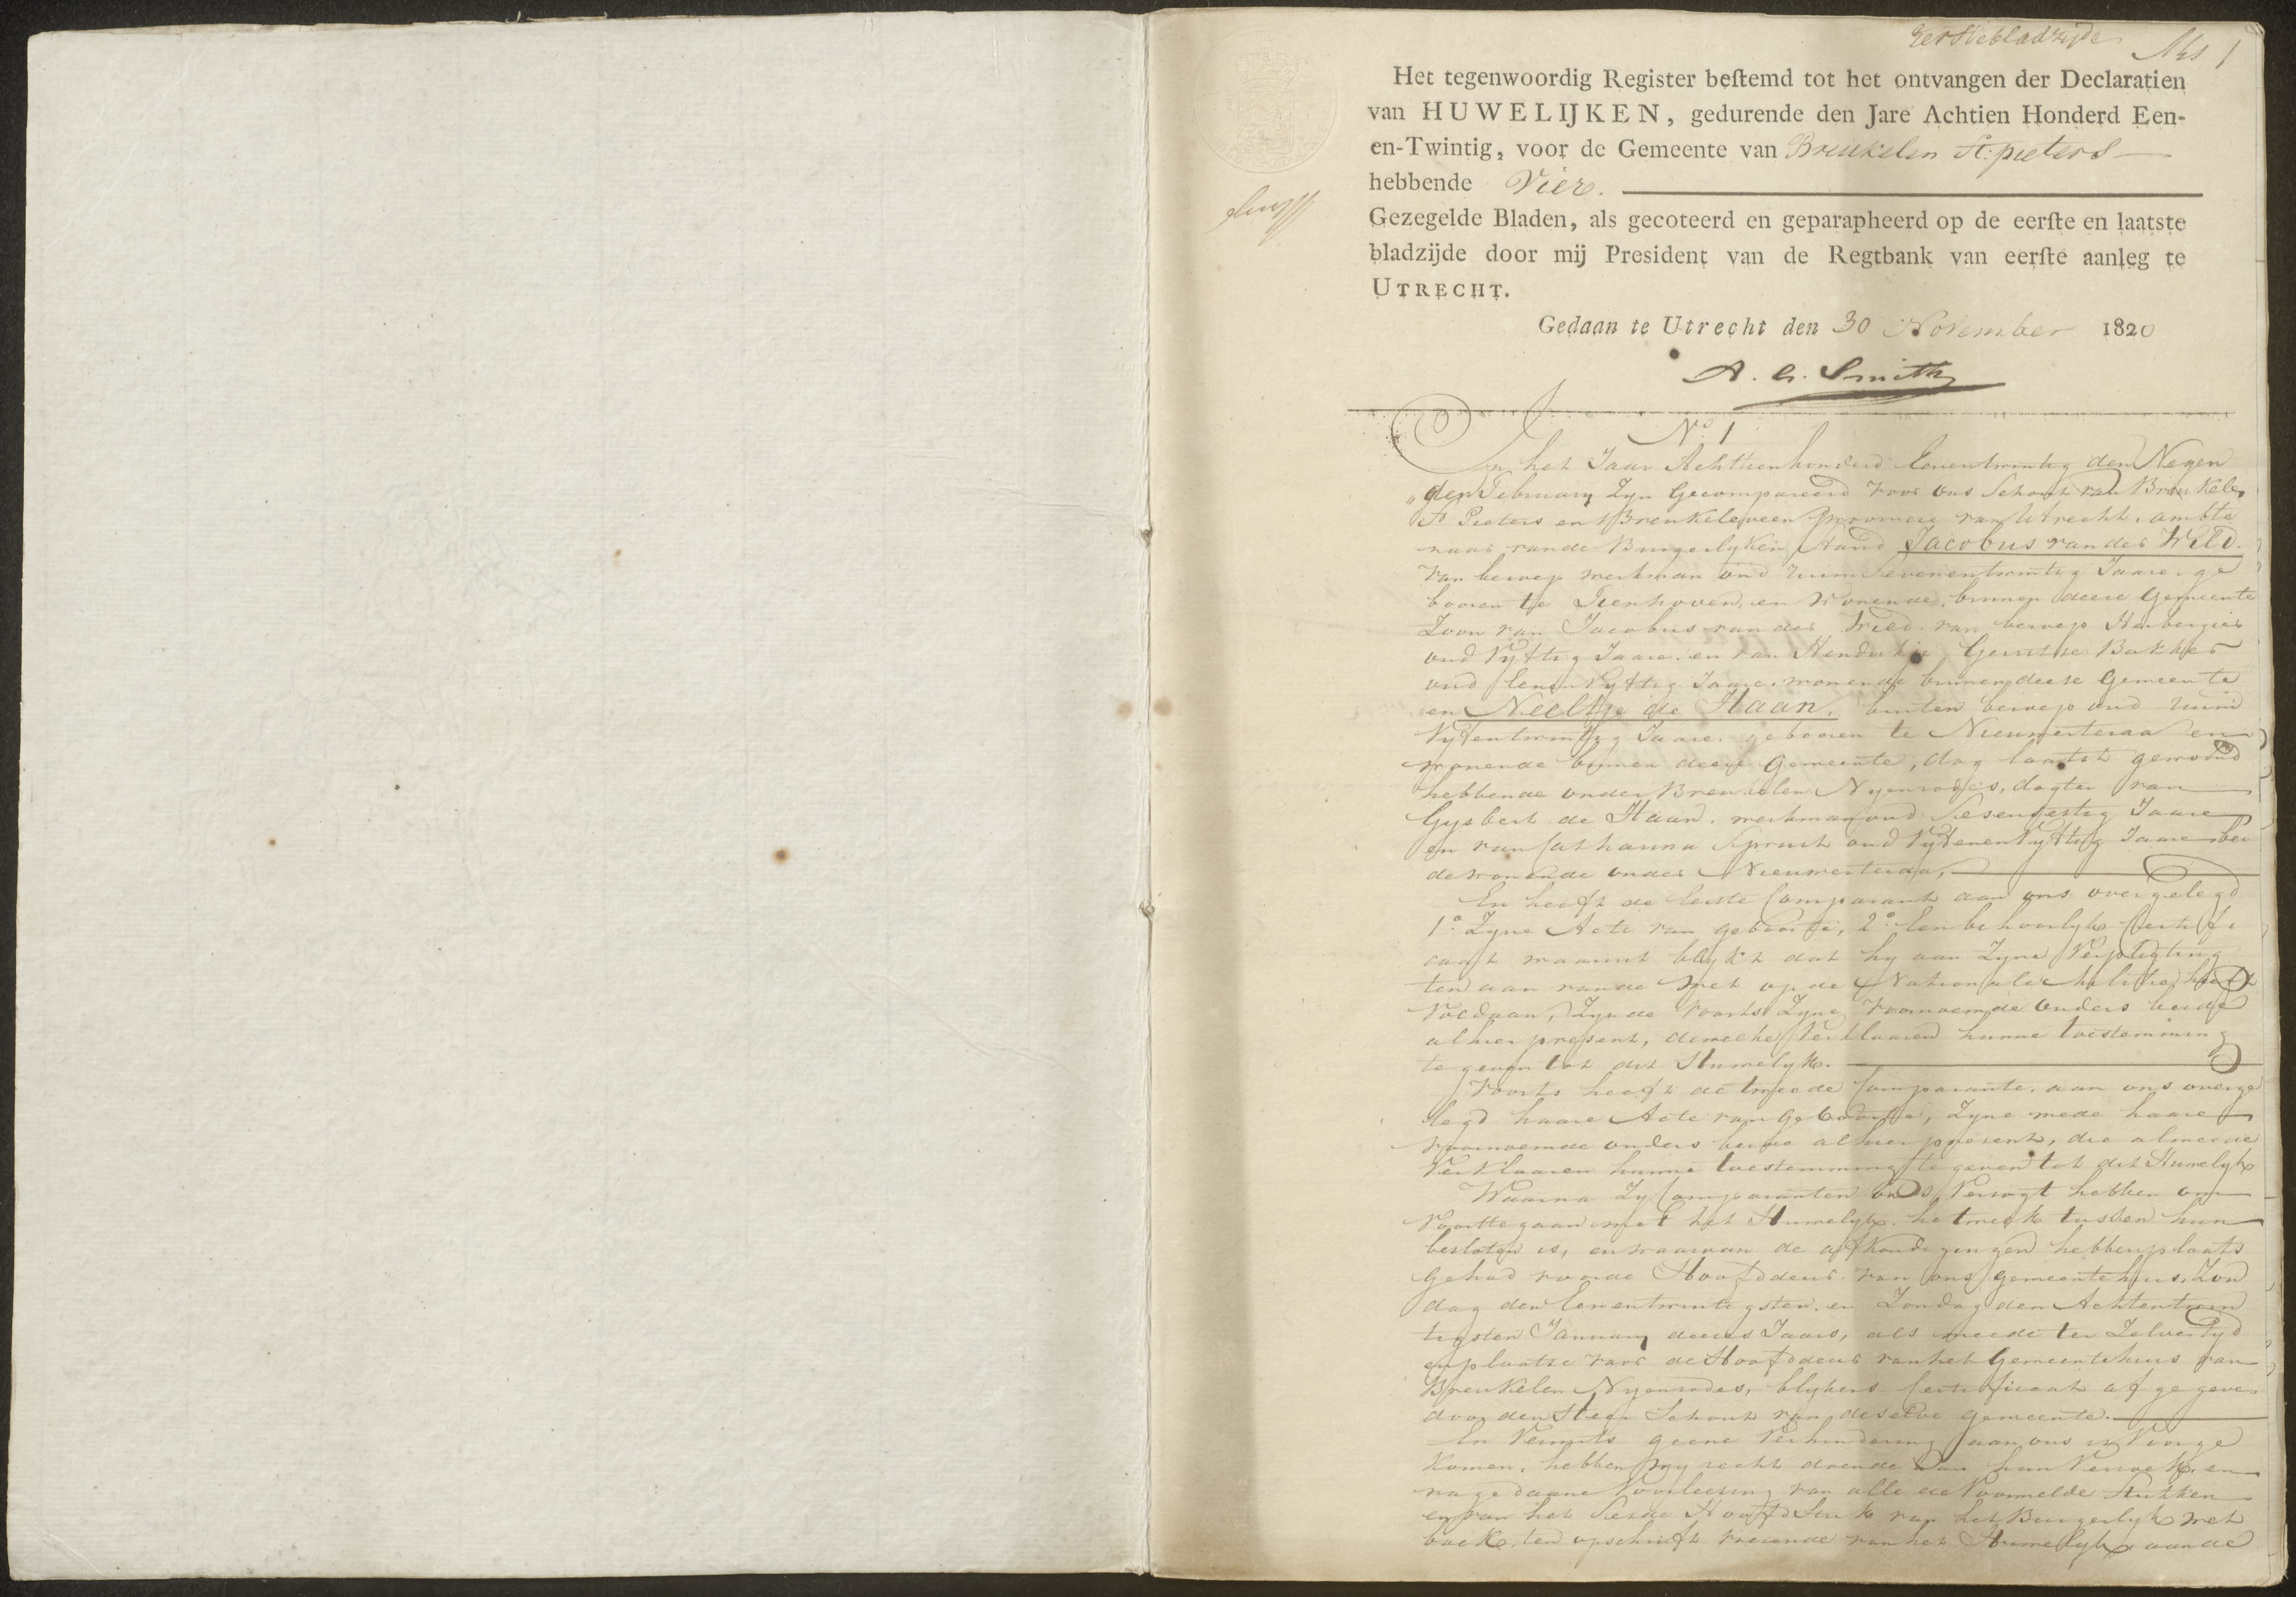 Eerste bladzijde
N: 1
Het tegenwoordig Register beſtemd tot het ontvangen der Declaratien
van HUWELIJKEN, gedurende den Jare Achtien Honderd Een-
en-Twintig, voor de Gemeente van Breukelen St: pieters
hebbende Vier.
Gezegelde Bladen, als gecoteerd en geparapheerd op de eerſte en laatste
bladzijde door mij President van de Regtbank van eerſte aanleg te
UTRECHT.
Gedaan te Utrecht den 30 November 1820
A. G. Smith
No. 1
In het Jaar Achttienhonderd Eenentwintig den Negen
„den February Zyn Gecompareerd voor ons Schout van Breukelen
St Pieters en Breukeleveen Provincie van Utrecht, ambte
naar van de Burgerlyken Stand Jacobus van der Wild.
Van beroep werkman oud ruim Sevenentwintig Jaare, ge
booren te Tienhoven, en Wonende binnen deese Gemeente
Zoon van Jacobus van der Wild. van beroep Herbergier
oud Vyftig Jaare. en van Hendrikje Gerritse Bakker
oud Eenen Vyftig Jaare. wonende binnen deese Gemeente
en Neeltje de Haan. buiten beroep oud ruim
Vyfentwintig Jaare. gebooren te Nieuwersteraa en
wonende binnen deese Gemeente, dog laatst gewoond
hebbende onder Breukelen Nyenrodes, dogter van
Gysbert de Haan. werkman oud Sesensestig Jaare
en van Catharina Spruit oud Vyfenen Vyftig Jaare bei
de wonende onder Nieuwersteraa,
En heeft de Eerste Comparant aan ons overgelegd
1o. Zyne Acte van geboorte, 2o. Een behoorlyk Certifi
caat waaruit blykt dat hy aan Zyne Verpligting
ten aan van de Wet op de Nationale Militie heeft
Voldaan, Zynde voorts Zyne voornoemde ouders beide
alhier present, dewelke Verklaaren hunne toestemming
te geven tot dit Huwelyk.
Voorts heeft de tweede Comparante. aan ons overge
legd haare Acte van Geboorte, Zyne mede haare
voornoemde ouders beide alhier present, die almeede
Verklaaren hunne toestemming te geven tot dit Huwelyk
Waarna Zy Comparanten ons Versogt hebben om
Voortte gaan met het Huwelyk. hetweek tussen hun
besloten is, en waarvan de afkondigingen hebben plaats
Gehad voor de Hoofddeur van ons gemeentehuis, Zon
dag den Eenentwintigsten. en Zondag den Achtentwin
tigsten January deeses Jaars, als meede ter Zelver tyd
en plaatse voor de Hoofddeur van het Gemeentehuis van
Breukelen Nyenrodes, blykens Certificaat afgegeven
door den Heer Schout van deselve gemeente.
En Vermits geene Verhindering aan ons is Voorge
komen, hebben Wy recht doende aan hun Versoek, en
na gedaane Voorleesing van alle de Voormelde stukken
en van het Sesde Hoofdstuk van het Burgerlyk Wet
boek, ten opschrift voerende van het Huwelyk, aan de